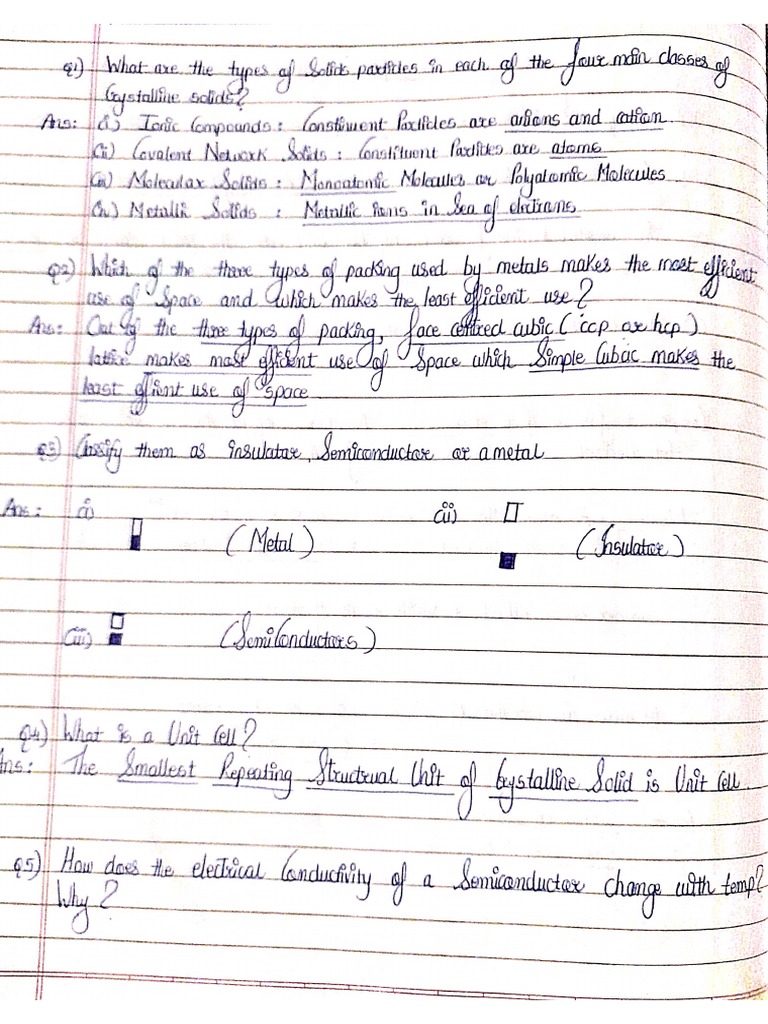 Q1) What are the types of Solids particles in each of the four main classes of
Crystalline solids?
Ans: (i) Ionic Compounds: Constituent Particles are anions and cation
(ii) Covalent Network Solids: Constituent Particles are atoms
(iii) Molecular Solids: Monoatomic Molecules or Polyatomic Molecules
(iv) Metallic Solids: Metallic ions in Sea of electrons
Q2) Which of the three types of packing used by metals makes the most efficient
use of Space and which makes the least efficient use?
Ans: Out of the three types of packing, face centred cubic (ccp or hcp)
lattice makes most efficient use of Space which Simple Cubic makes the
least efficient use of space
Q3) Classify them as insulator, Semiconductor or a metal
Ans: i) (Metal) (ii) (Insulator)
(iii) (SemiConductors)
Q4) What is a Unit Cell?
Ans: The Smallest Repeating Structrual Unit of Crystalline Solid is Unit Cell
Q5) How does the electrical Conductivity of a Semiconductor change with temp?
Why?